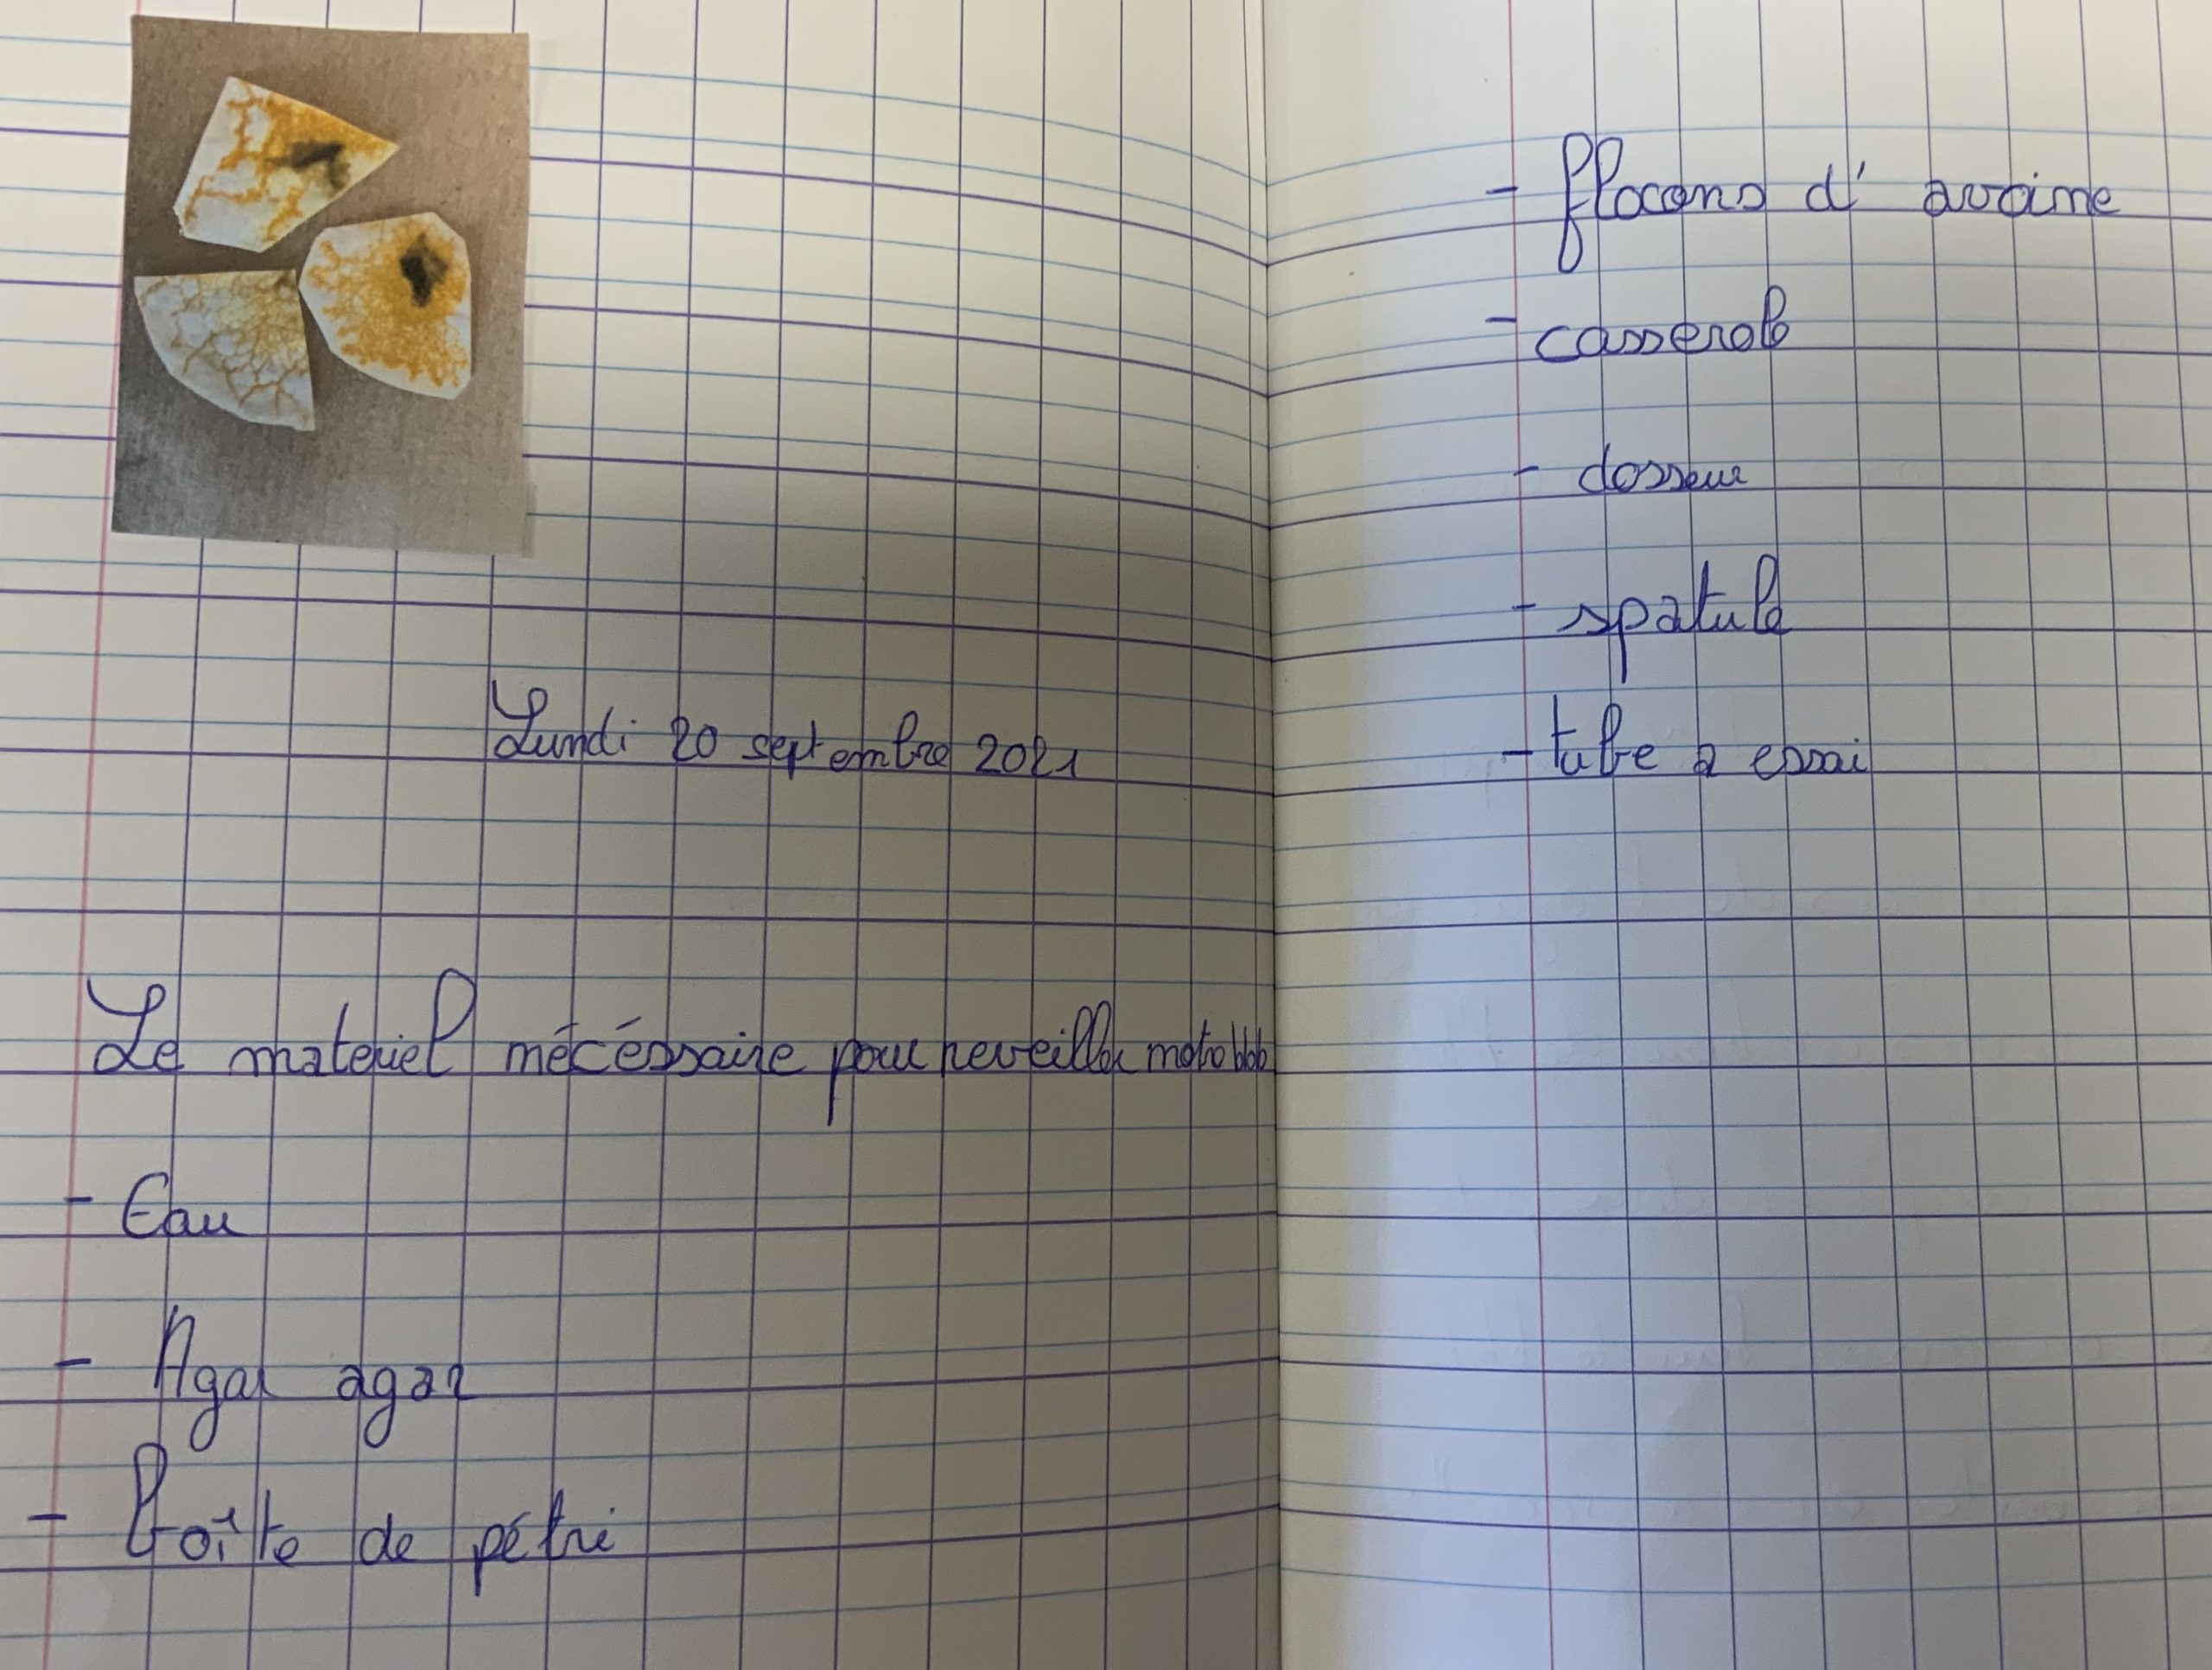 Lundi 20 septembre 2021
Le materiel nécéssaire pour reveiller notre blob
- Eau
- Agar agar
- Boîte de pétri
- flocons d' avoine
- casserole
- dosseur
- spatule
- tube a essai